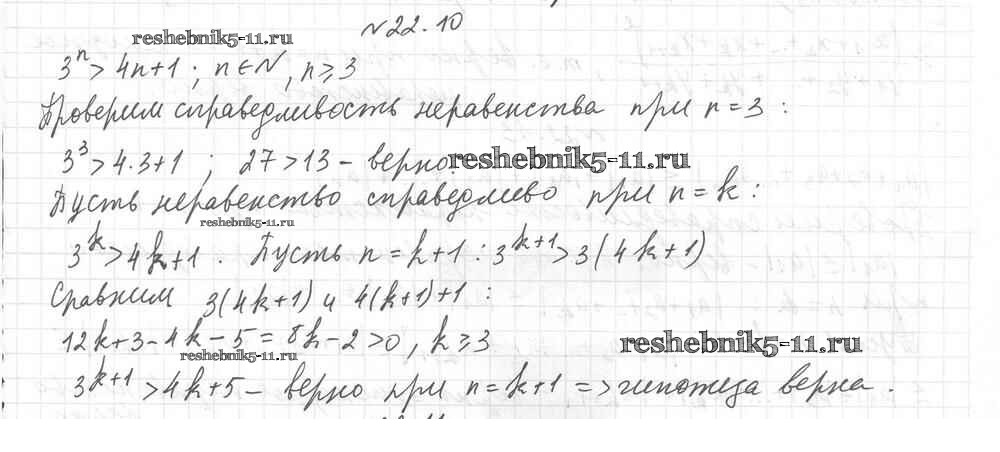 №22.10
reshebnik5-11.ru
3ⁿ > 4n+1 ; n ∈ N, n ⩾ 3
Проверим справедливость неравенства при n = 3 :
3³ > 4·3+1 ; 27 > 13 – верно. reshebnik5-11.ru
Пусть неравенство справедливо при n = k :
reshebnik5-11.ru
3ᵏ > 4k+1 . Пусть n = k+1 : 3ᵏ⁺¹ > 3(4k+1)
Сравним 3(4k+1) и 4(k+1)+1 :
12k+3–4k–5 = 8k–2 > 0 , k ⩾ 3
reshebnik5-11.ru reshebnik5-11.ru
3ᵏ⁺¹ > 4k+5 – верно при n = k+1 => гипотеза верна .